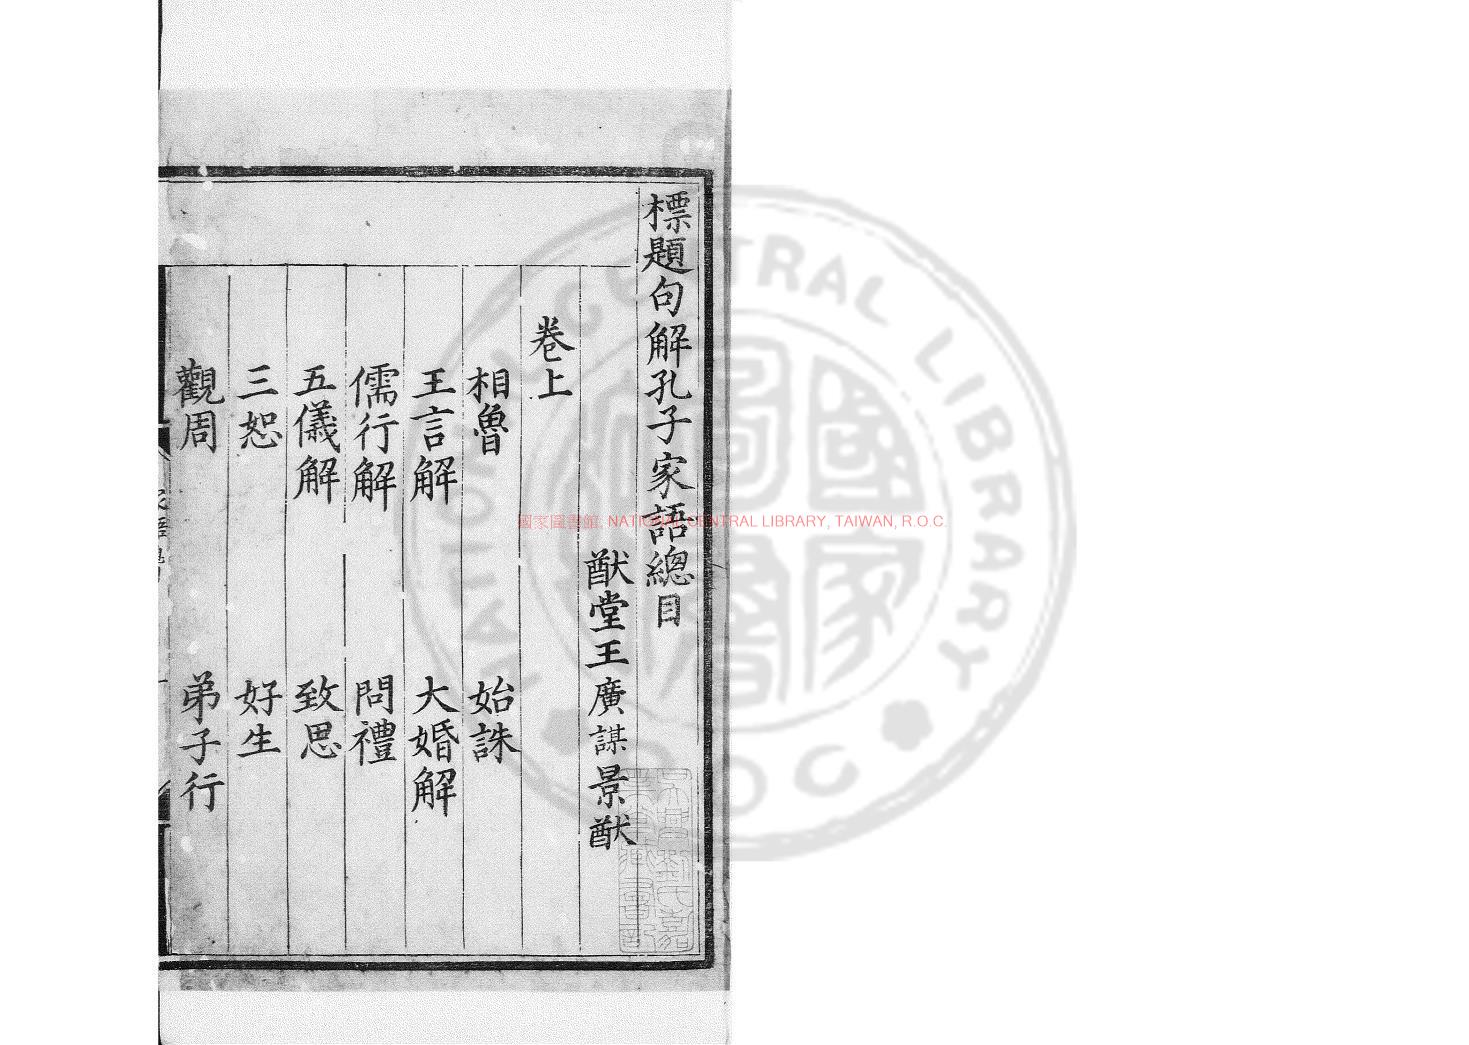 標題句解孔子家語總目
猷堂王廣謀景猷
卷上
相魯 始誅
王言解 大婚解
儒行解 問禮
五儀解 致思
三恕 好生
觀周 弟子行
國家圖書館, NATIONAL CENTRAL LIBRARY, TAIWAN, R.O.C.
NATIONAL CENTRAL LIBRARY
R O C